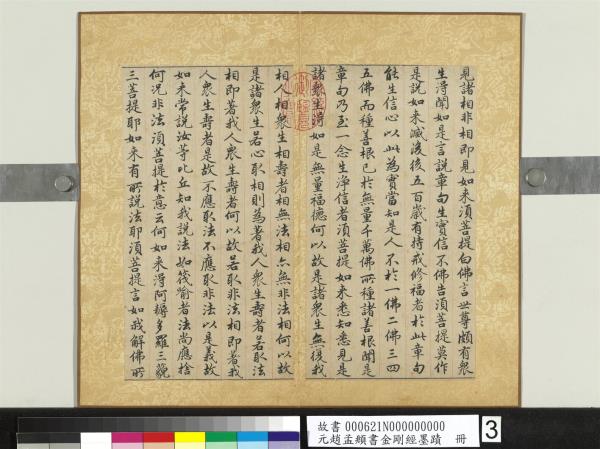 見諸相非相即見如來須菩提白佛言世尊頗有衆
生得聞如是言說章句生實信不佛告須菩提莫作
是說如來滅後後五百歲有持戒修福者於此章句
能生信心以此為實當知是人不於一佛二佛三四
五佛而種善根已於無量千萬佛所種諸善根聞是
章句乃至一念生淨信者須菩提如來悉知悉見是
諸衆生得如是無量福德何以故是諸衆生無復我
相人相衆生相壽者相無法相亦無非法相何以故
是諸衆生若心取相則為著我人衆生壽者若取法
相即著我人衆生壽者何以故若取非法相即著我
人衆生壽者是故不應取法不應取非法以是義故
如來常說汝等比丘知我說法如筏喻者法尚應捨
何況非法須菩提於意云何如來得阿耨多羅三藐
三菩提耶如來有所說法耶須菩提言如我解佛所
故書 000621N000000000
元趙孟頫書金剛經墨蹟 冊
3